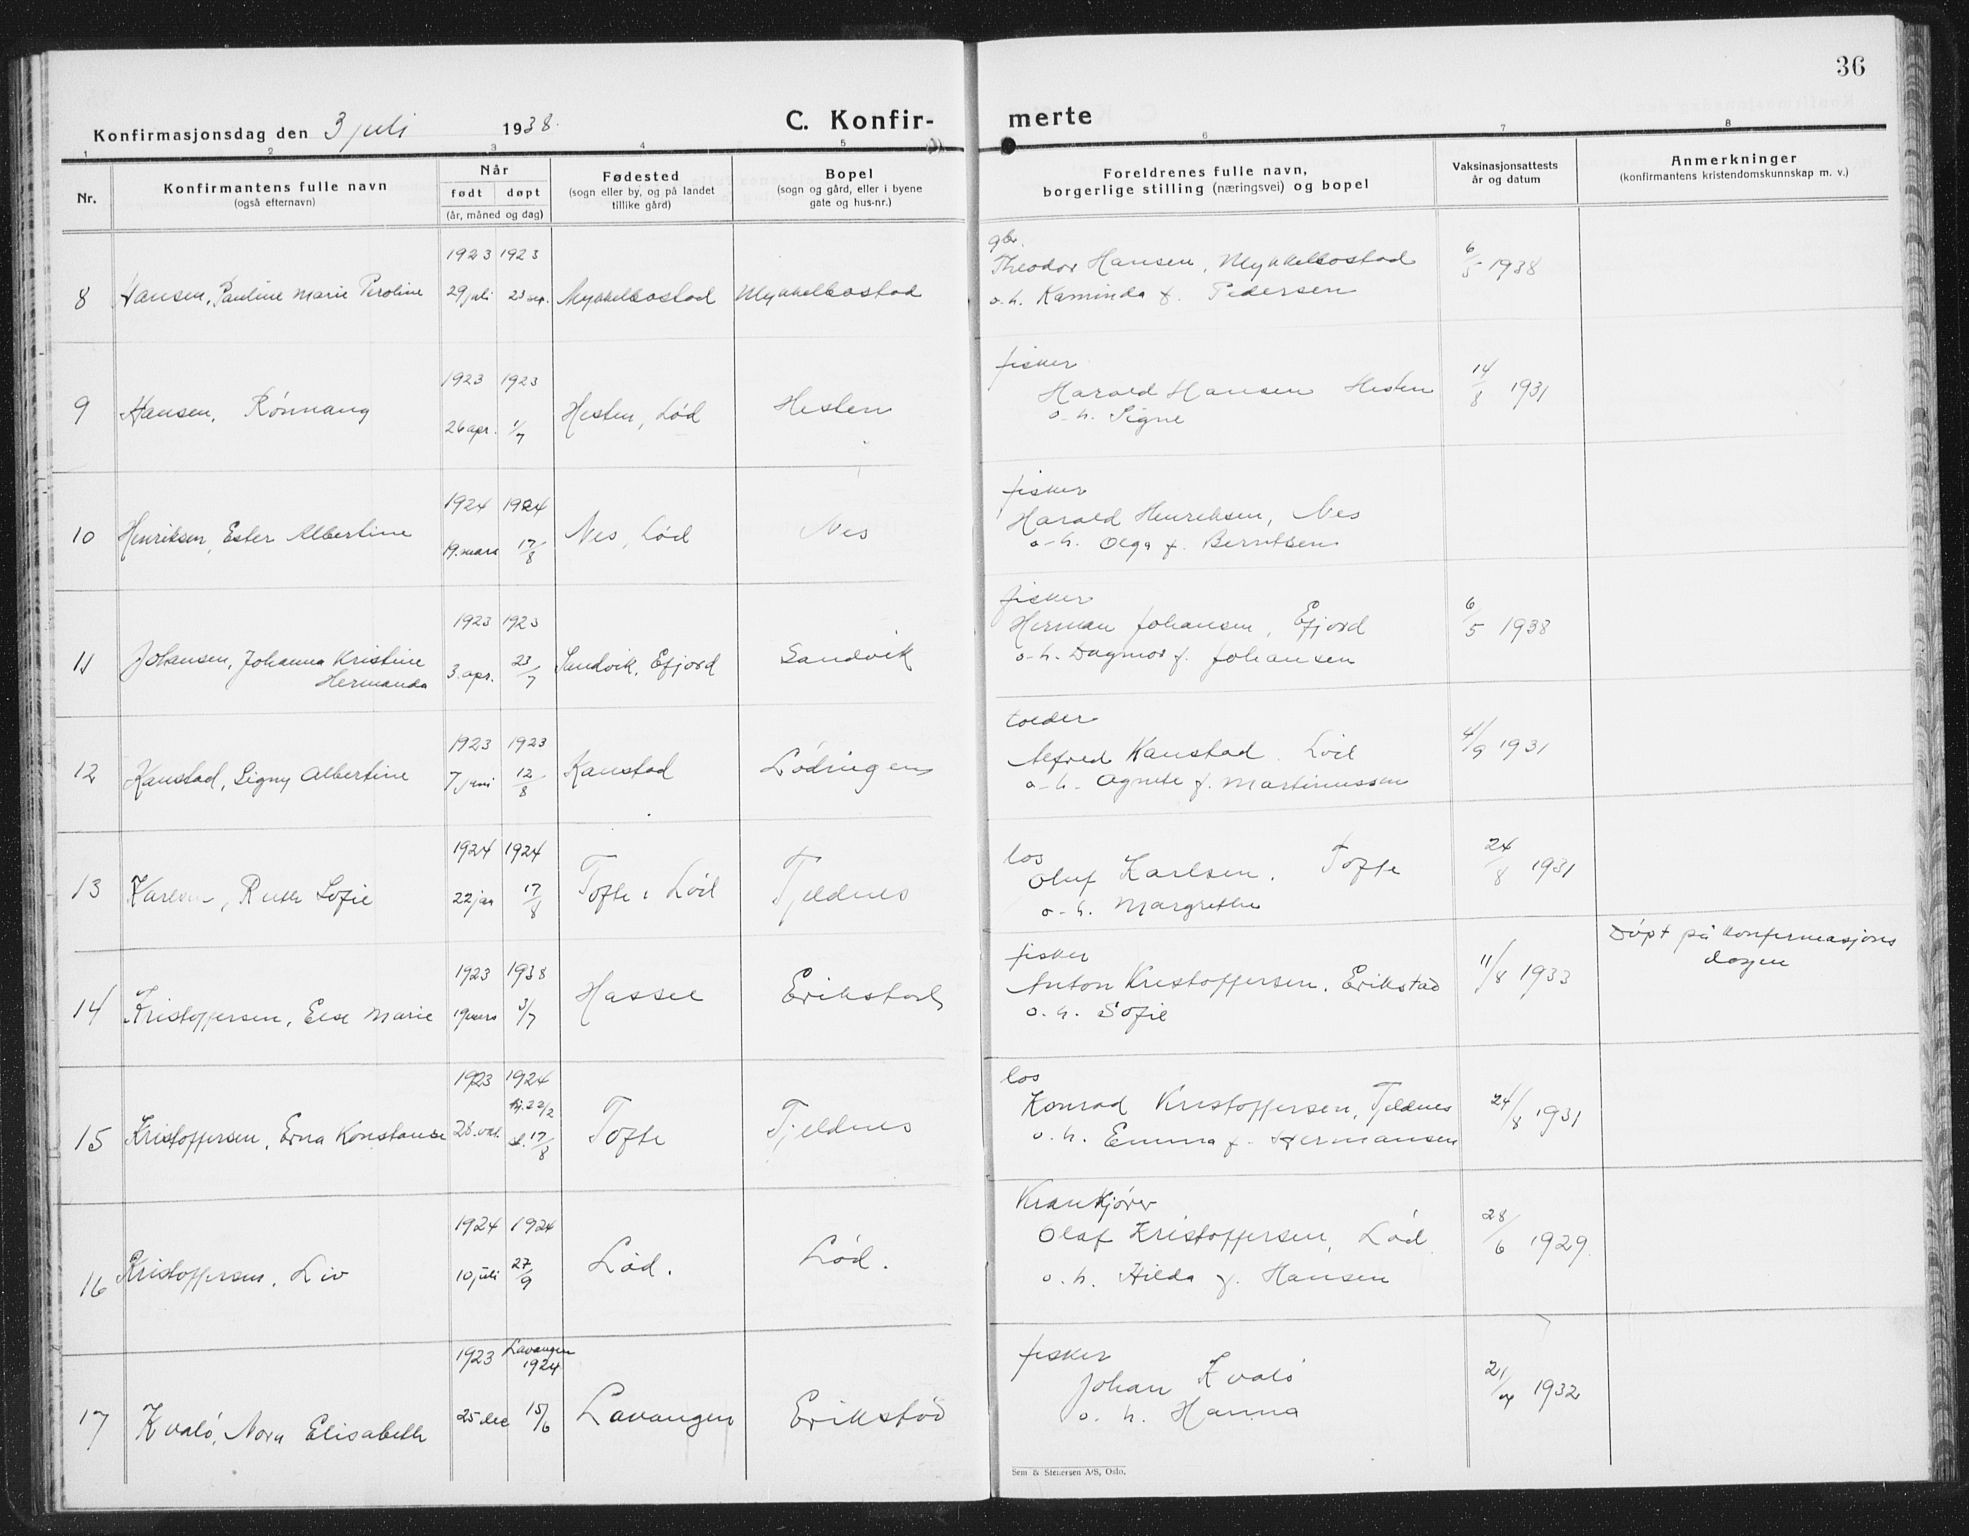 36
Konfirmasjonsdag den 3 juli 1938.
C. Konfir-
merte
1 2 3 4 5 6 7 8
Nr.
Konfirmantens fulle navn
(også efternavn)
Når
født døpt
(år, måned og dag)
Fødested
(sogn eller by, og på landet
tillike gård)
Bopel
(sogn og gård, eller i byene
gate og hus-nr.)
Foreldrenes fulle navn,
borgerlige stilling (næringsvei) og bopel
Vaksinasjonsattests
år og datum
Anmerkninger
(konfirmantens kristendomskunnskap m. v.)
1923 1923
8 Hansen, Pauline Marie Peroline 29 juli 23 sep. Mykkelbostad Mykkelbostad
gbr.
Theodor Hansen, Mykkelbostad
o. h. Kaminda f. Pedersen
6/5 1938
1923 1923
9 Hansen, Rønnaug 26 apr. 1/7 Hesten, Lød Hesten
fisker
Harald Hansen Hesten
o. h. Signe
14/8 1931
1924 1924
10 Henriksen, Ester Albertine 19. mars 17/8 Nes, Lød Nes
fisker
Harald Henriksen, Nes
o. h. Olga f. Berntsen
1923 1923
11 Johansen, Johanna Kristine
Hermanda
3. apr. 23/7 Sandvik, Efjord Sandvik
fisker
Herman Johansen, Efjord
o. h. Dagmar f. Johansen
6/5 1938
1923 1923
12 Kanstad, Signy Albertine 7 juni 12/8 Kanstad Lødingen
toller
Alfred Kanstad. Lød
o. h. Agnete f. Martinussen
4/9 1931
1924 1924
13 Karlsen, Ruth Sofie 22 jan 17/8 Tofte i Lød Tjeldnes
los
Oluf Karlsen. Tofte
o. h. Margrethe
24/8 1931
1923 1938
14 Kristoffersen, Else Marie 19 mars 3/7 Hassel Erikstad
fisker
Anton Kristoffersen. Erikstad
o. h. Sofie
11/8 1933
Døpt på konfirmasjons
dagen
1923 1924
15 Kristoffersen, Erna Konstanse 28. okt. hj. 22/2
st. 17/8
Tofte Tjeldnes
los
Konrad Kristoffersen, Tjeldnes
o. h. Emma f. Hermansen
24/8 1931
1924 1924
16 Kristoffersen, Liv 10 juli 27/9 Lød. Lød.
Krankjører
Olaf Kristoffersen, Lød
o. h. Hilda f. Hansen
28/6 1929.
1923 Lavangen
1924
17 Kvalø, Nora Elisabeth 25 dec 15/6 Lavangen Erikstad
fisker
Johan Kvalø
o. h. Hanna
1932
Sem & Stenersen A/S, Oslo.